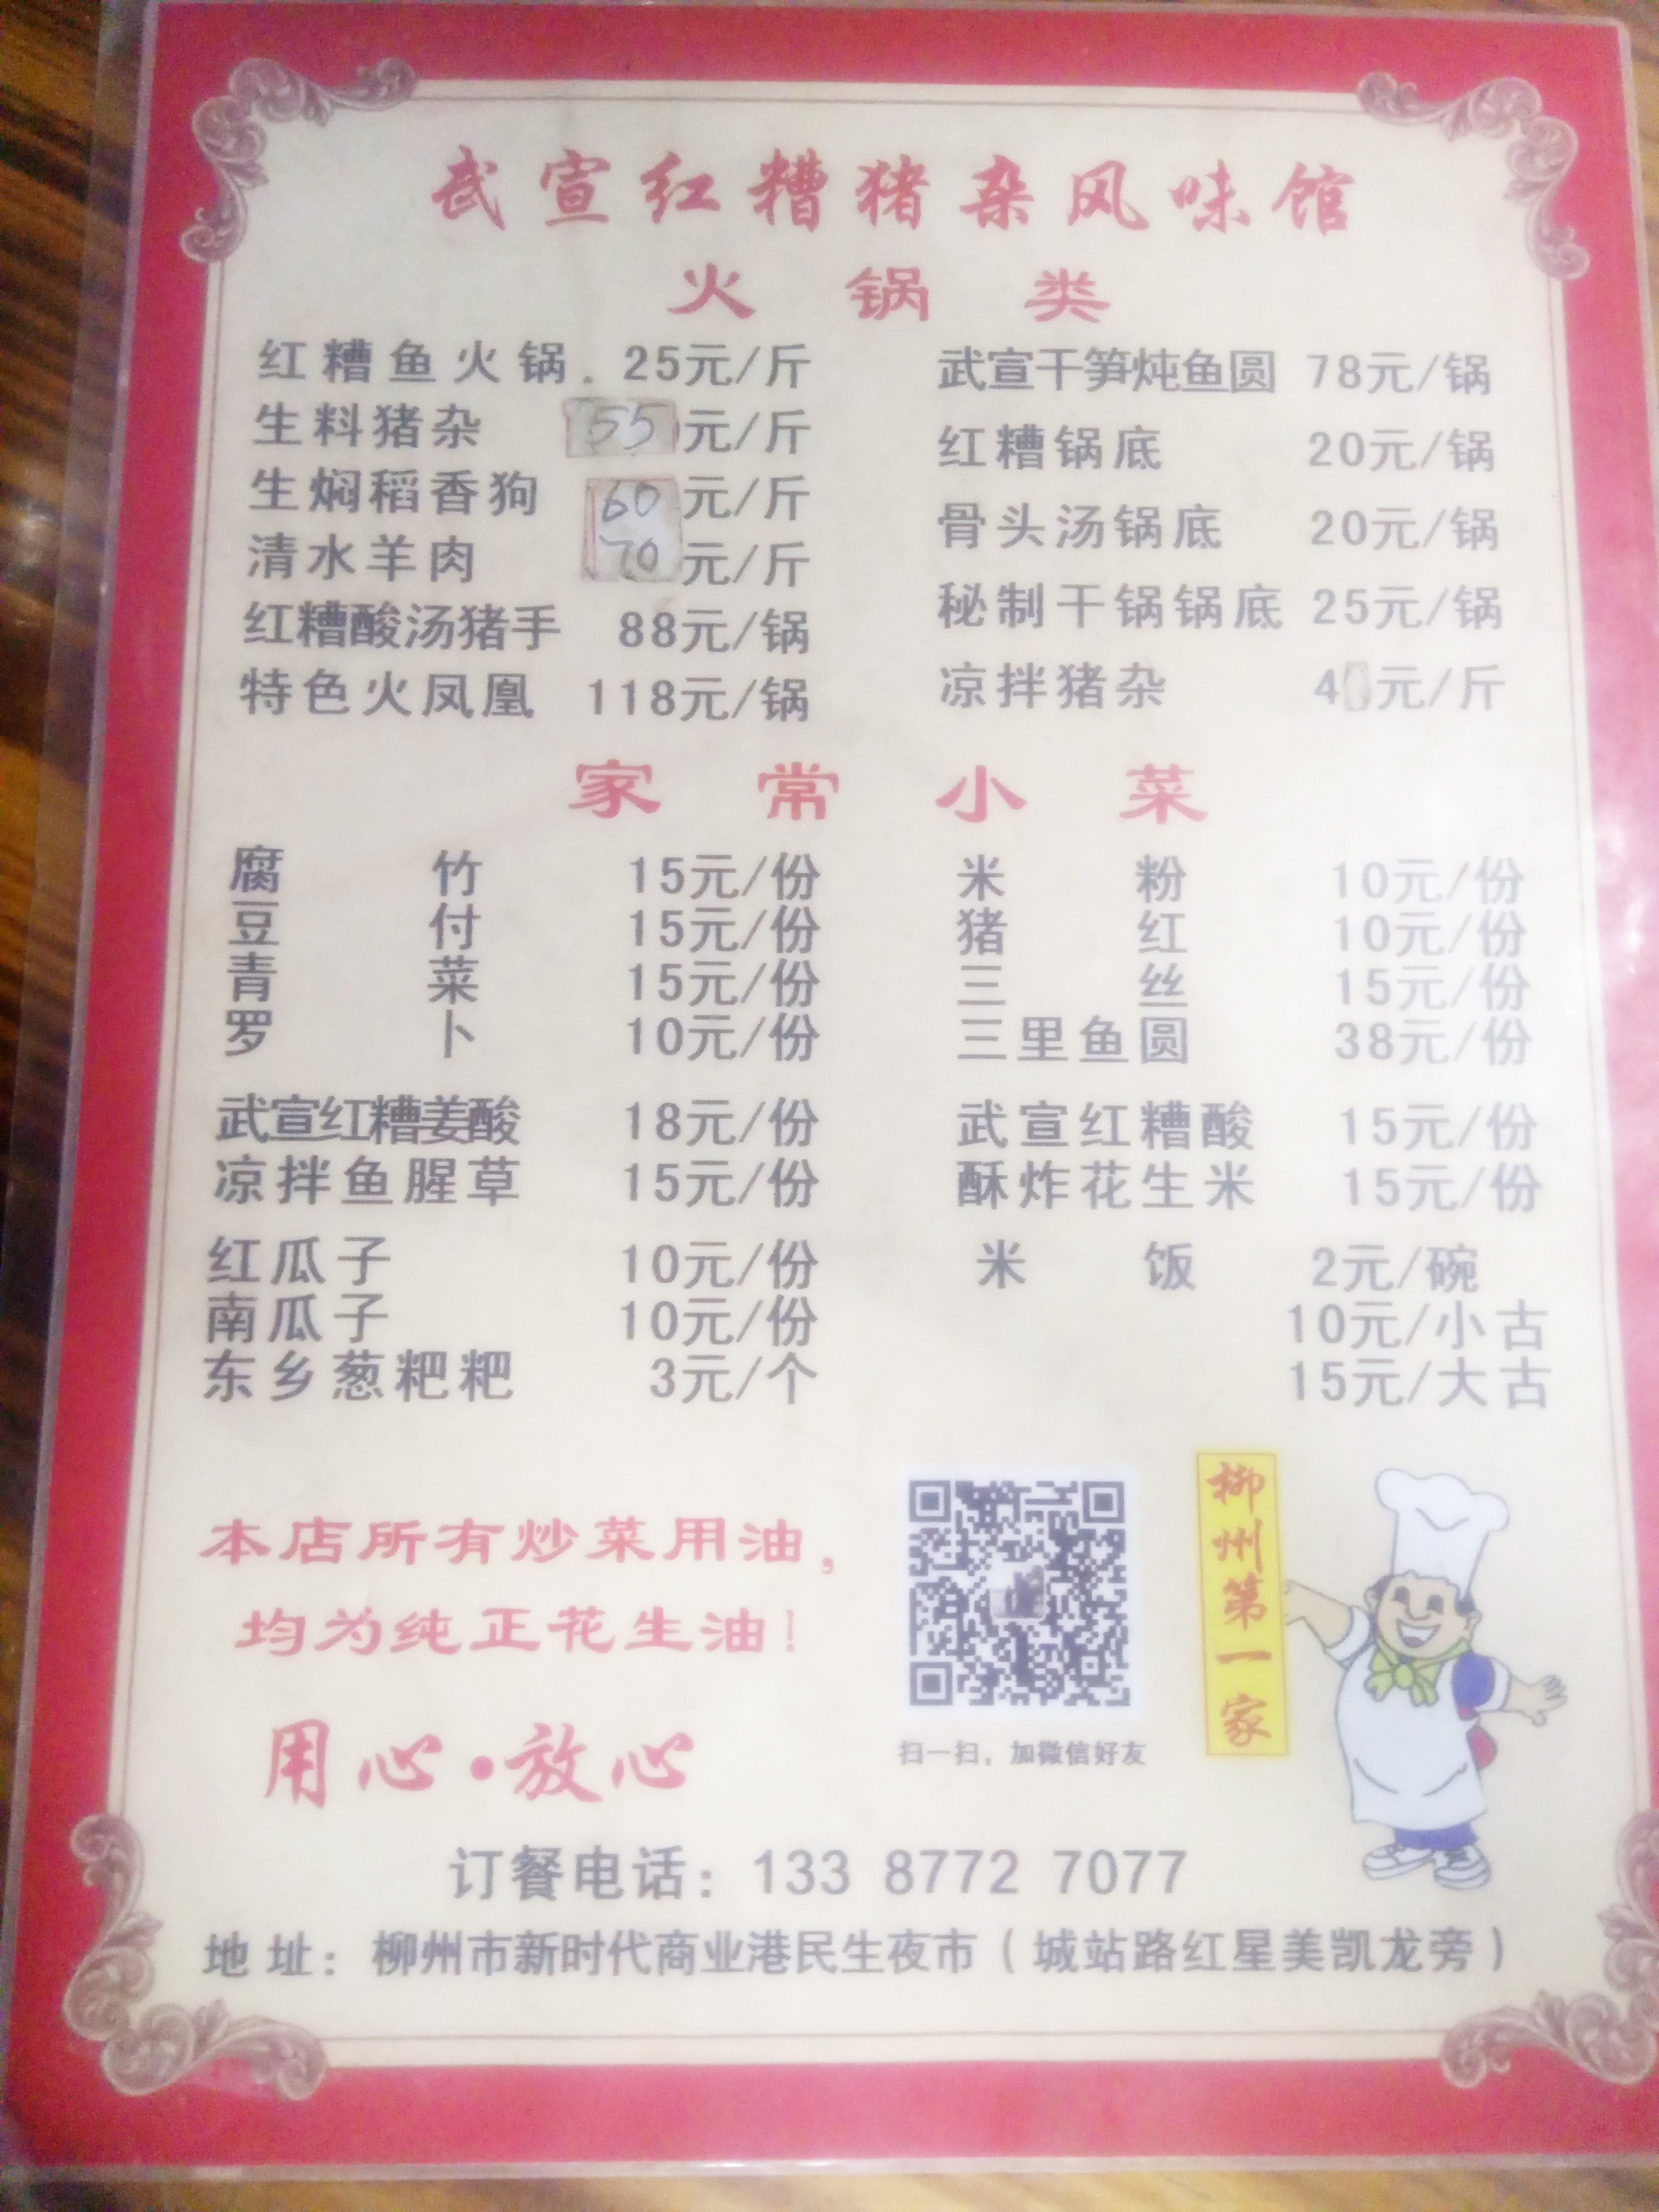 武宣红糟猪杂风味馆
火锅类
红糟鱼火锅. 25元/斤
生料猪杂 55元/斤
生焖稻香狗 60元/斤
清水羊肉 70元/斤
红糟酸汤猪手 88元/锅
特色火凤凰 118元/锅
武宣干笋炖鱼圆 78元/锅
红糟锅底 20元/锅
骨头汤锅底 20元/锅
秘制干锅锅底 25元/锅
凉拌猪杂 40元/斤
家常小菜
腐竹 15元/份
豆付 15元/份
青菜 15元/份
罗卜 10元/份
武宣红糟姜酸 18元/份
凉拌鱼腥草 15元/份
红瓜子 10元/份
南瓜子 10元/份
东乡葱粑粑 3元/个
米粉 10元/份
猪红 10元/份
三丝 15元/份
三里鱼圆 38元/份
武宣红糟酸 15元/份
酥炸花生米 15元/份
米饭 2元/碗
10元/小古
15元/大古
本店所有炒菜用油，
均为纯正花生油！
用心·放心
扫一扫，加微信好友
柳州第一家
订餐电话：133 8772 7077
地址：柳州市新时代商业港民生夜市（城站路红星美凯龙旁）